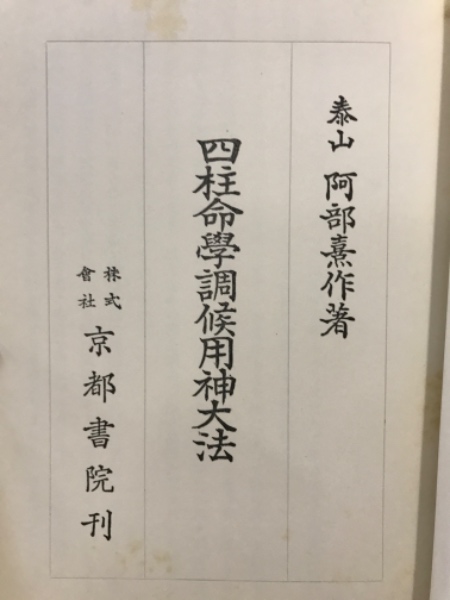 泰山 阿部熹作著
四柱命學調候用神大法
株式會社 京都書院刊